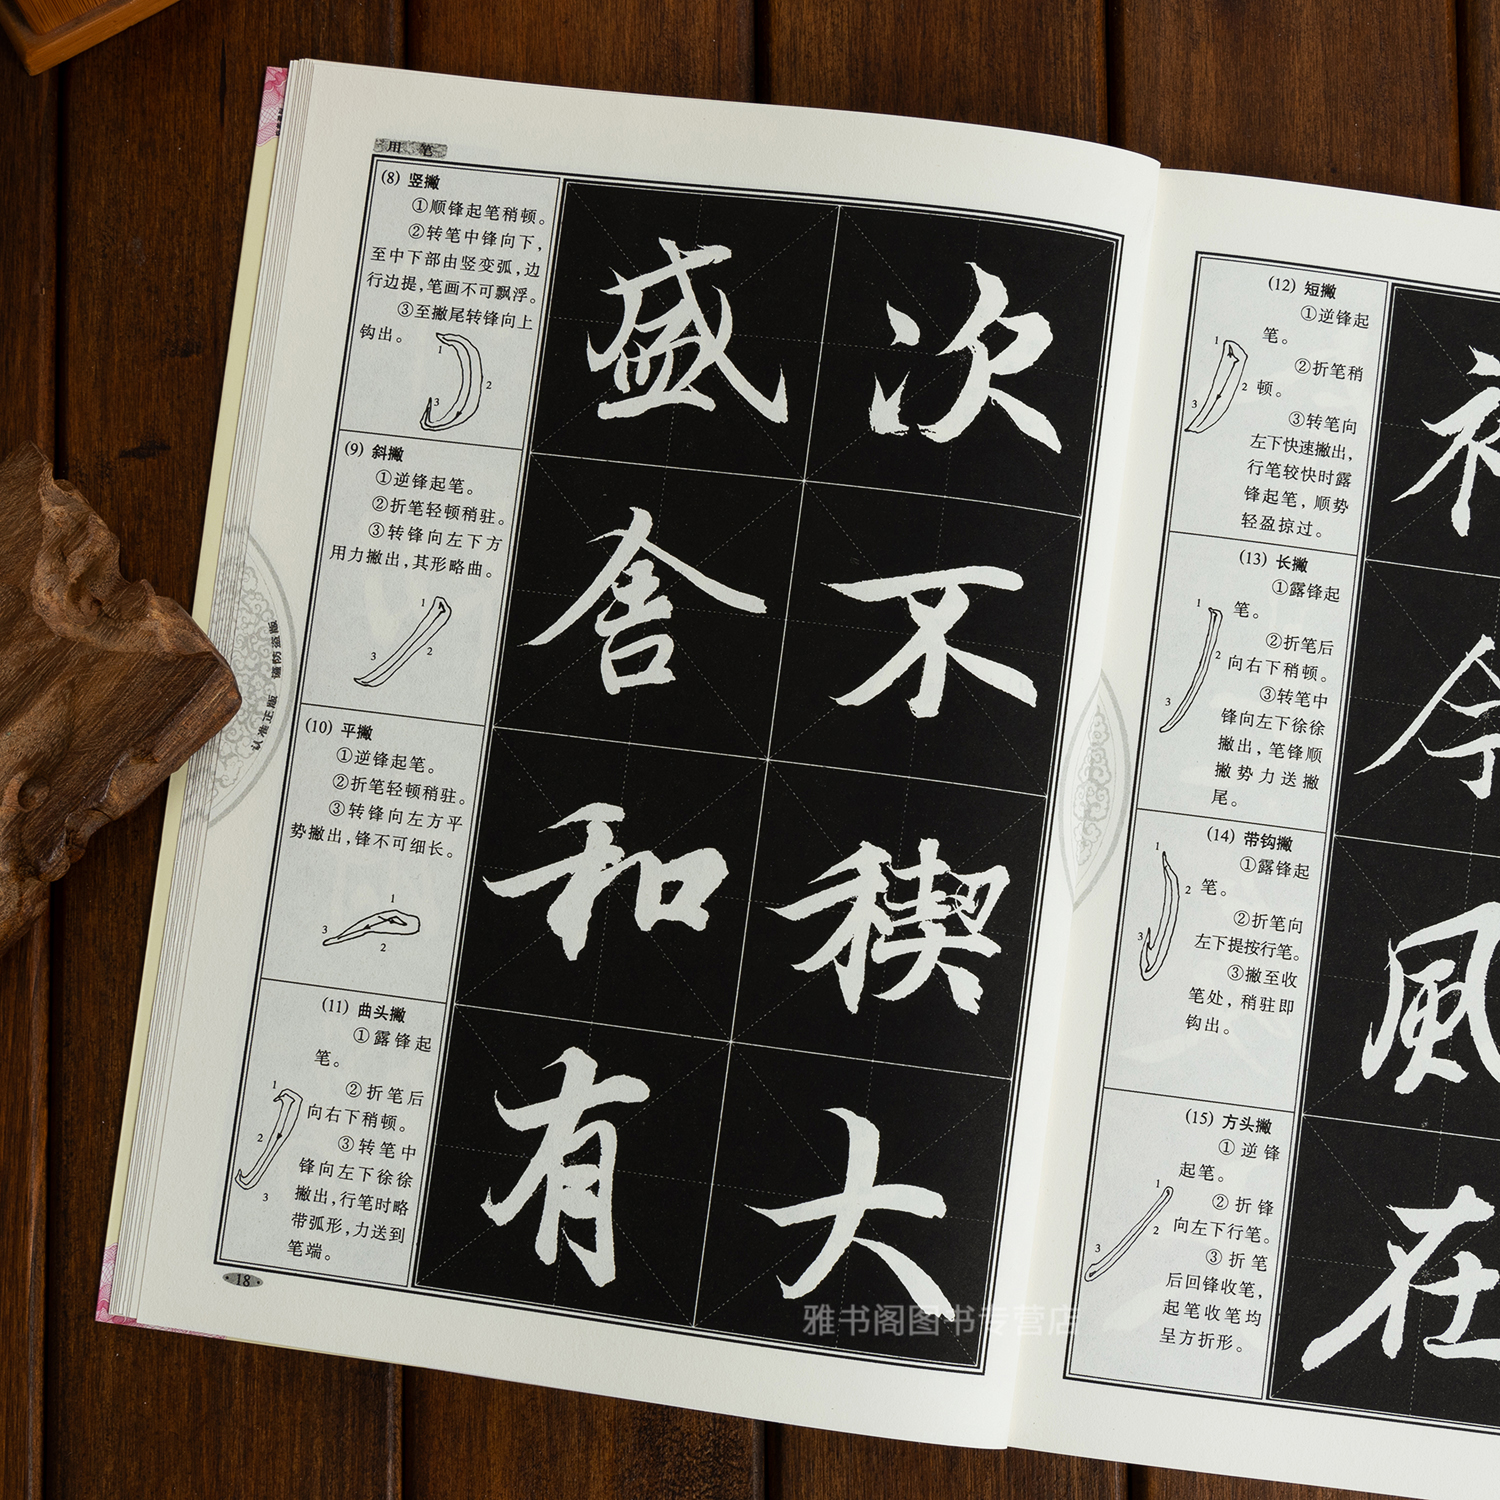 用 笔
(8) 竖撇
①顺锋起笔稍顿。
②转笔中锋向下，
至中下部由竖变弧，边
行边提，笔画不可飘浮。
③至撇尾转锋向上
钩出。
1
2
3
(9) 斜撇
①逆锋起笔。
②折笔轻顿稍驻。
③转锋向左下方
用力撇出，其形略曲。
1
2
3
(10) 平撇
①逆锋起笔。
②折笔轻顿稍驻。
③转锋向左方平
势撇出，锋不可细长。
1
3
2
(11) 曲头撇
①露锋起
笔。
②折笔后
向右下稍顿。
③转笔中
锋向左下徐徐
撇出，行笔时略
带弧形，力送到
笔端。
1
2
3
盛 次
舍 不
和 稧
有 大
18
认准正版 谨防盗版
(12) 短撇
①逆锋起
笔。
②折笔稍
顿。
③转笔向
左下快速撇出，
行笔较快时露
锋起笔，顺势
轻盈掠过。
1
2
3
(13) 长撇
①露锋起
笔。
②折笔后
向右下稍顿。
③转笔中
锋向左下徐徐
撇出，笔锋顺
撇势力送撇
尾。
1
2
3
(14) 带钩撇
①露锋起
笔。
②折笔向
左下提按行笔。
③撇至收
笔处，稍驻即
钩出。
1
2
3
(15) 方头撇
①逆锋
起笔。
②折锋
向左下行笔。
③折笔
后回锋收笔，
起笔收笔均
呈方折形。
1
2
3
今
風
在
雅书阁图书专营店